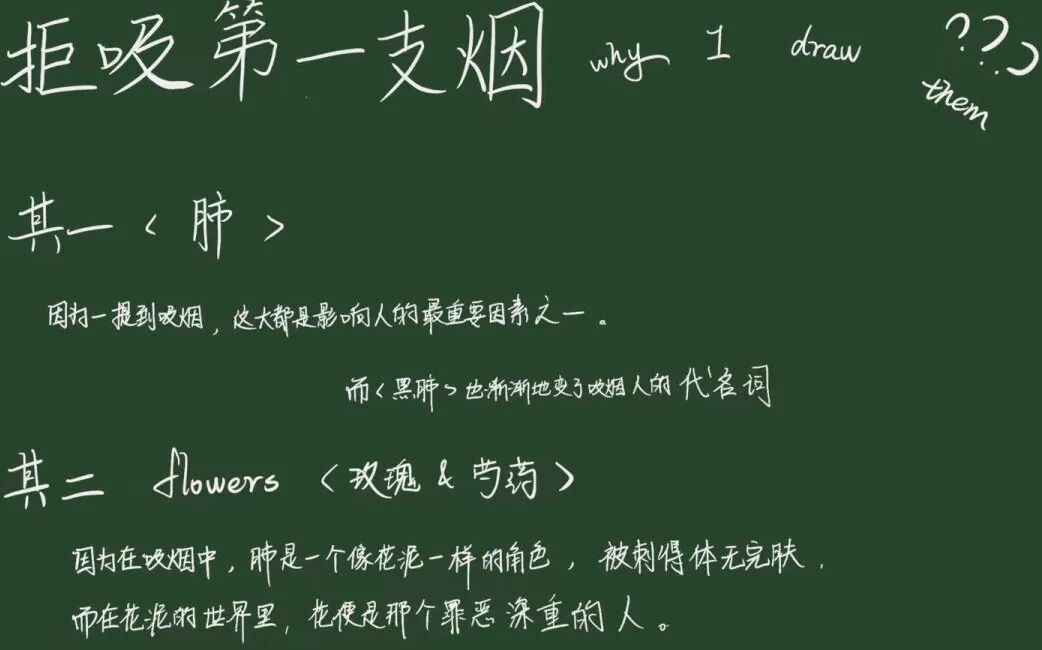 拒吸第一支烟 why I draw them ???
其一〈肺〉
因为一提到吸烟，这大都是影响人的最重要因素之一。
而〈黑肺〉也渐渐地变了吸烟人的代名词
其二 flowers〈玫瑰&芍药〉
因为在吸烟中，肺是一个像花泥一样的角色，被刺得体无完肤．
而在花泥的世界里，花便是那个罪恶深重的人。